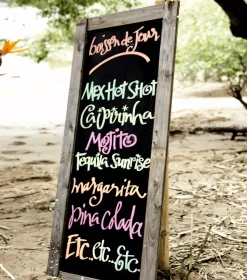 boisson de Jour
Mex Hot Shot
Caïpirinha
Mojito
Tequila Sunrise
margarita
Pina Colada
Etc..etc..Etc.